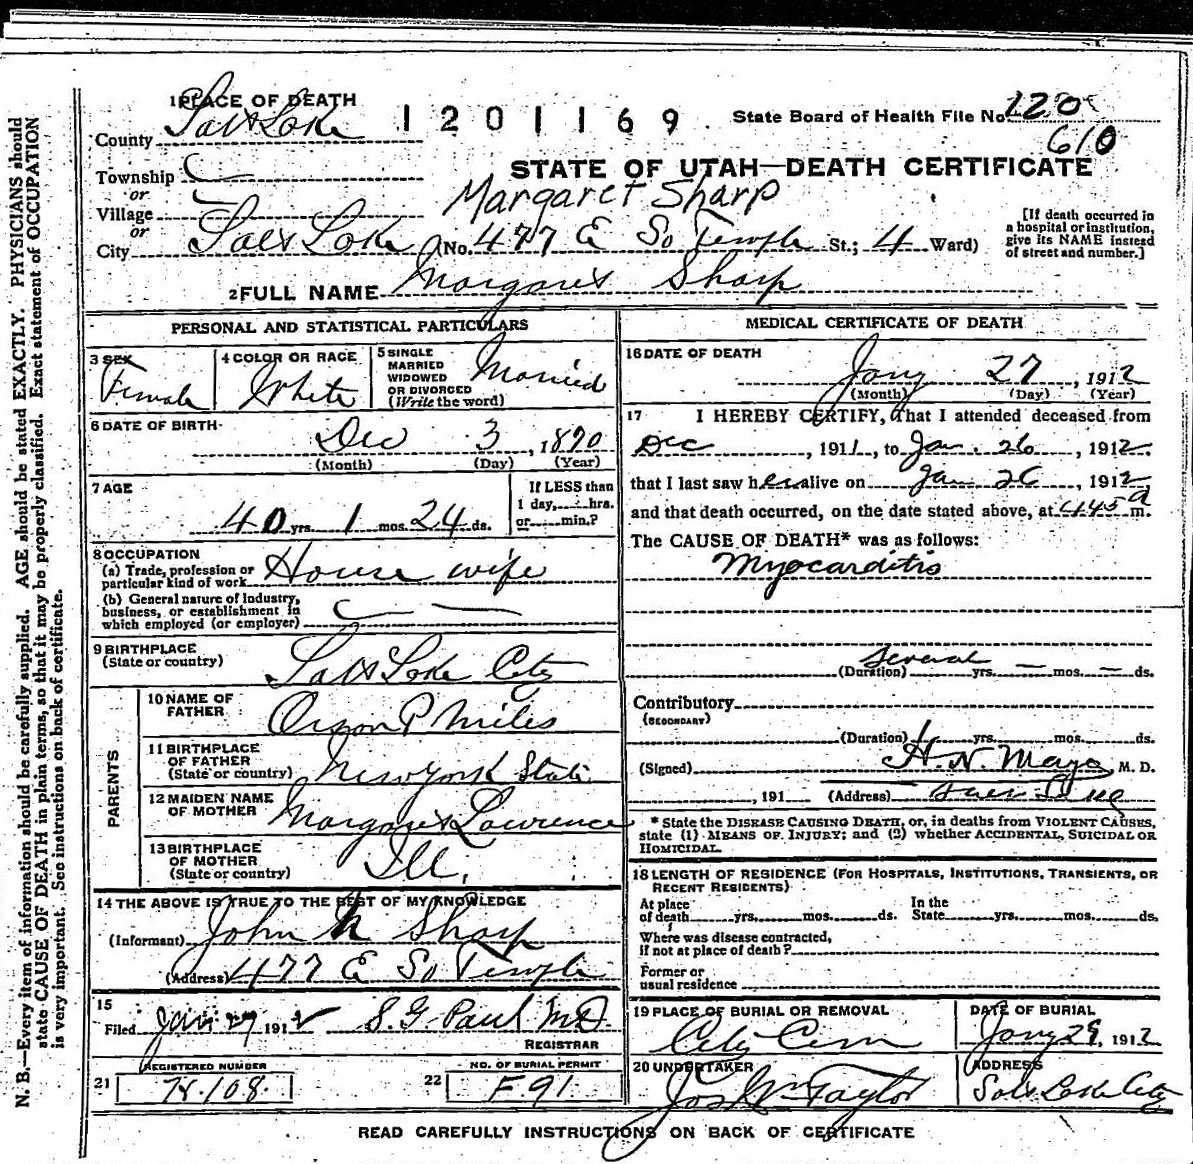 N. B.—Every item of information should be carefully supplied. AGE should be stated EXACTLY. PHYSICIANS should
state CAUSE OF DEATH in plain terms, so that it may be properly classified. Exact statement of OCCUPATION
is very important. See instructions on back of certificate.
1 PLACE OF DEATH
County Salt Lake
1201169
State Board of Health File No. 120
610
STATE OF UTAH—DEATH CERTIFICATE
Township
or
Village
or
Margaret Sharp
City Salt Lake (No. 477 E So Temple St.; 4 Ward)
[If death occurred in
a hospital or institution,
give its NAME instead
of street and number.]
2 FULL NAME Margaret Sharp
PERSONAL AND STATISTICAL PARTICULARS
3 SEX
Female
4 COLOR OR RACE
White
5 SINGLE
MARRIED
WIDOWED
OR DIVORCED
(Write the word)
Married
6 DATE OF BIRTH
Dec 3, 1870
(Month) (Day) (Year)
7 AGE
40 yrs. 1 mos. 24 ds.
If LESS than
1 day, hrs.
or min.?
8 OCCUPATION
(a) Trade, profession or
particular kind of work House wife
(b) General nature of Industry,
business, or establishment in
which employed (or employer)
9 BIRTHPLACE
(State or country)
Salt Lake City
PARENTS
10 NAME OF
FATHER
Orson P Miles
11 BIRTHPLACE
OF FATHER
(State or country) New York State
12 MAIDEN NAME
OF MOTHER
Margaret Lawrence
13 BIRTHPLACE
OF MOTHER
(State or country)
Ill.
14 THE ABOVE IS TRUE TO THE BEST OF MY KNOWLEDGE
(Informant) John Sharp
(Address) 477 E So Temple
15
Filed Jan 29 1912 S. G. Paul MD.
REGISTRAR
REGISTERED NUMBER
21 H.108.
NO. OF BURIAL PERMIT
22 F 91
MEDICAL CERTIFICATE OF DEATH
16 DATE OF DEATH
Jany 27, 1912
(Month) (Day) (Year)
17 I HEREBY CERTIFY, That I attended deceased from
Dec, 1911, to Jan. 26, 1912
that I last saw her alive on Jan 26, 1912
and that death occurred, on the date stated above, at 4.45 a m.
The CAUSE OF DEATH* was as follows:
Myocarditis
(Duration) Several yrs. — mos. — ds.
Contributory
(SECONDARY)
(Duration) yrs. mos. ds.
(Signed) H. N. Mayo M. D.
, 191 (Address)
* State the DISEASE CAUSING DEATH, or, in deaths from VIOLENT CAUSES,
state (1) MEANS OF INJURY; and (2) whether ACCIDENTAL, SUICIDAL OR
HOMICIDAL.
18 LENGTH OF RESIDENCE (FOR HOSPITALS, INSTITUTIONS, TRANSIENTS, OR
RECENT RESIDENTS)
At place
of death yrs. mos. ds.
In the
State yrs. mos. ds.
Where was disease contracted,
if not at place of death?
Former or
usual residence
19 PLACE OF BURIAL OR REMOVAL
City Cem
DATE OF BURIAL
Jany 29, 1912
20 UNDERTAKER
Jos Wm Taylor
ADDRESS
Salt Lake City
READ CAREFULLY INSTRUCTIONS ON BACK OF CERTIFICATE